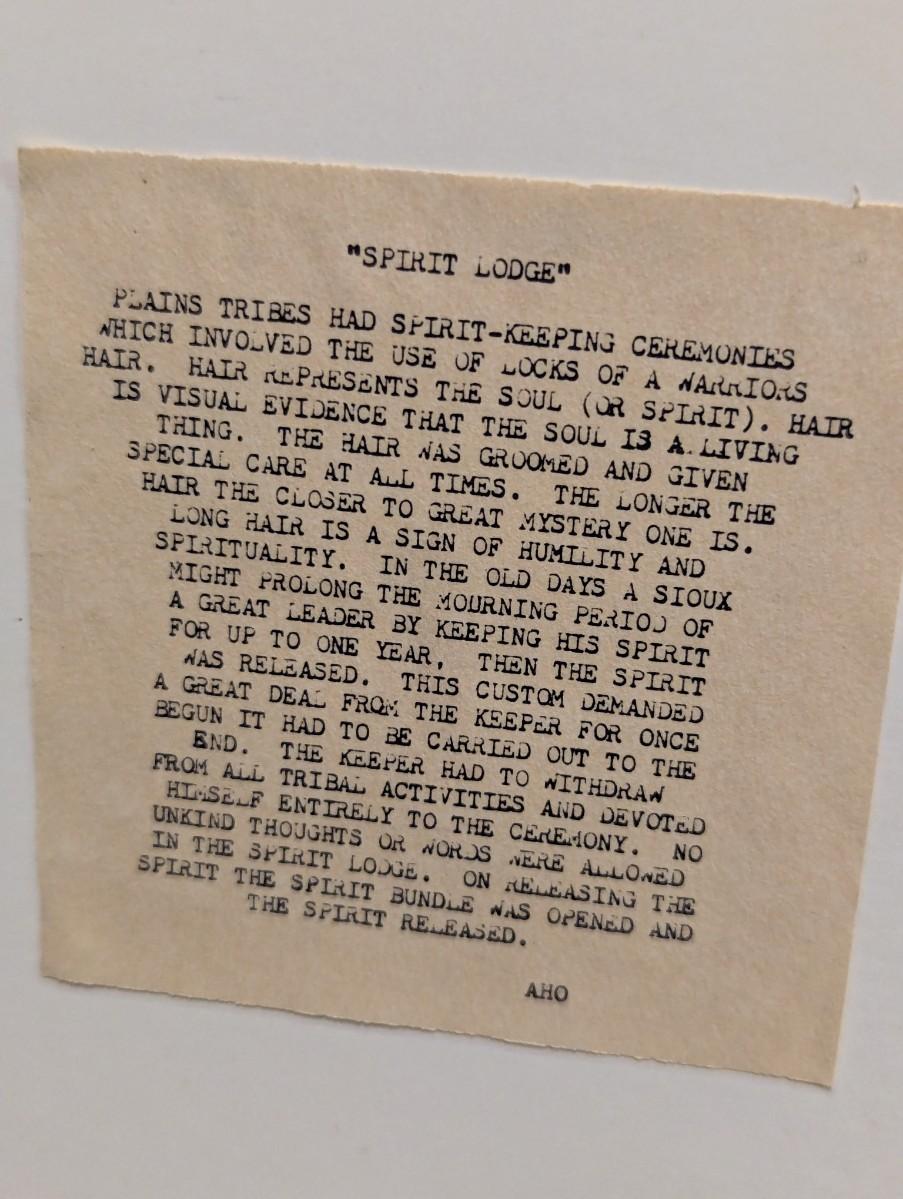 "SPIRIT LODGE"
PLAINS TRIBES HAD SPIRIT-KEEPING CEREMONIES
WHICH INVOLVED THE USE OF LOCKS OF A WARRIORS
HAIR. HAIR REPRESENTS THE SOUL (OR SPIRIT). HAIR
IS VISUAL EVIDENCE THAT THE SOUL IS A LIVING
THING. THE HAIR WAS GROOMED AND GIVEN
SPECIAL CARE AT ALL TIMES. THE LONGER THE
HAIR THE CLOSER TO GREAT MYSTERY ONE IS.
LONG HAIR IS A SIGN OF HUMILITY AND
SPIRITUALITY. IN THE OLD DAYS A SIOUX
MIGHT PROLONG THE MOURNING PERIOD OF
A GREAT LEADER BY KEEPING HIS SPIRIT
FOR UP TO ONE YEAR. THEN THE SPIRIT
WAS RELEASED. THIS CUSTOM DEMANDED
A GREAT DEAL FROM THE KEEPER FOR ONCE
BEGUN IT HAD TO BE CARRIED OUT TO THE
END. THE KEEPER HAD TO WITHDRAW
FROM ALL TRIBAL ACTIVITIES AND DEVOTED
HIMSELF ENTIRELY TO THE CEREMONY. NO
UNKIND THOUGHTS OR WORDS WERE ALLOWED
IN THE SPIRIT LODGE. ON RELEASING THE
SPIRIT THE SPIRIT BUNDLE WAS OPENED AND
THE SPIRIT RELEASED.
AHO